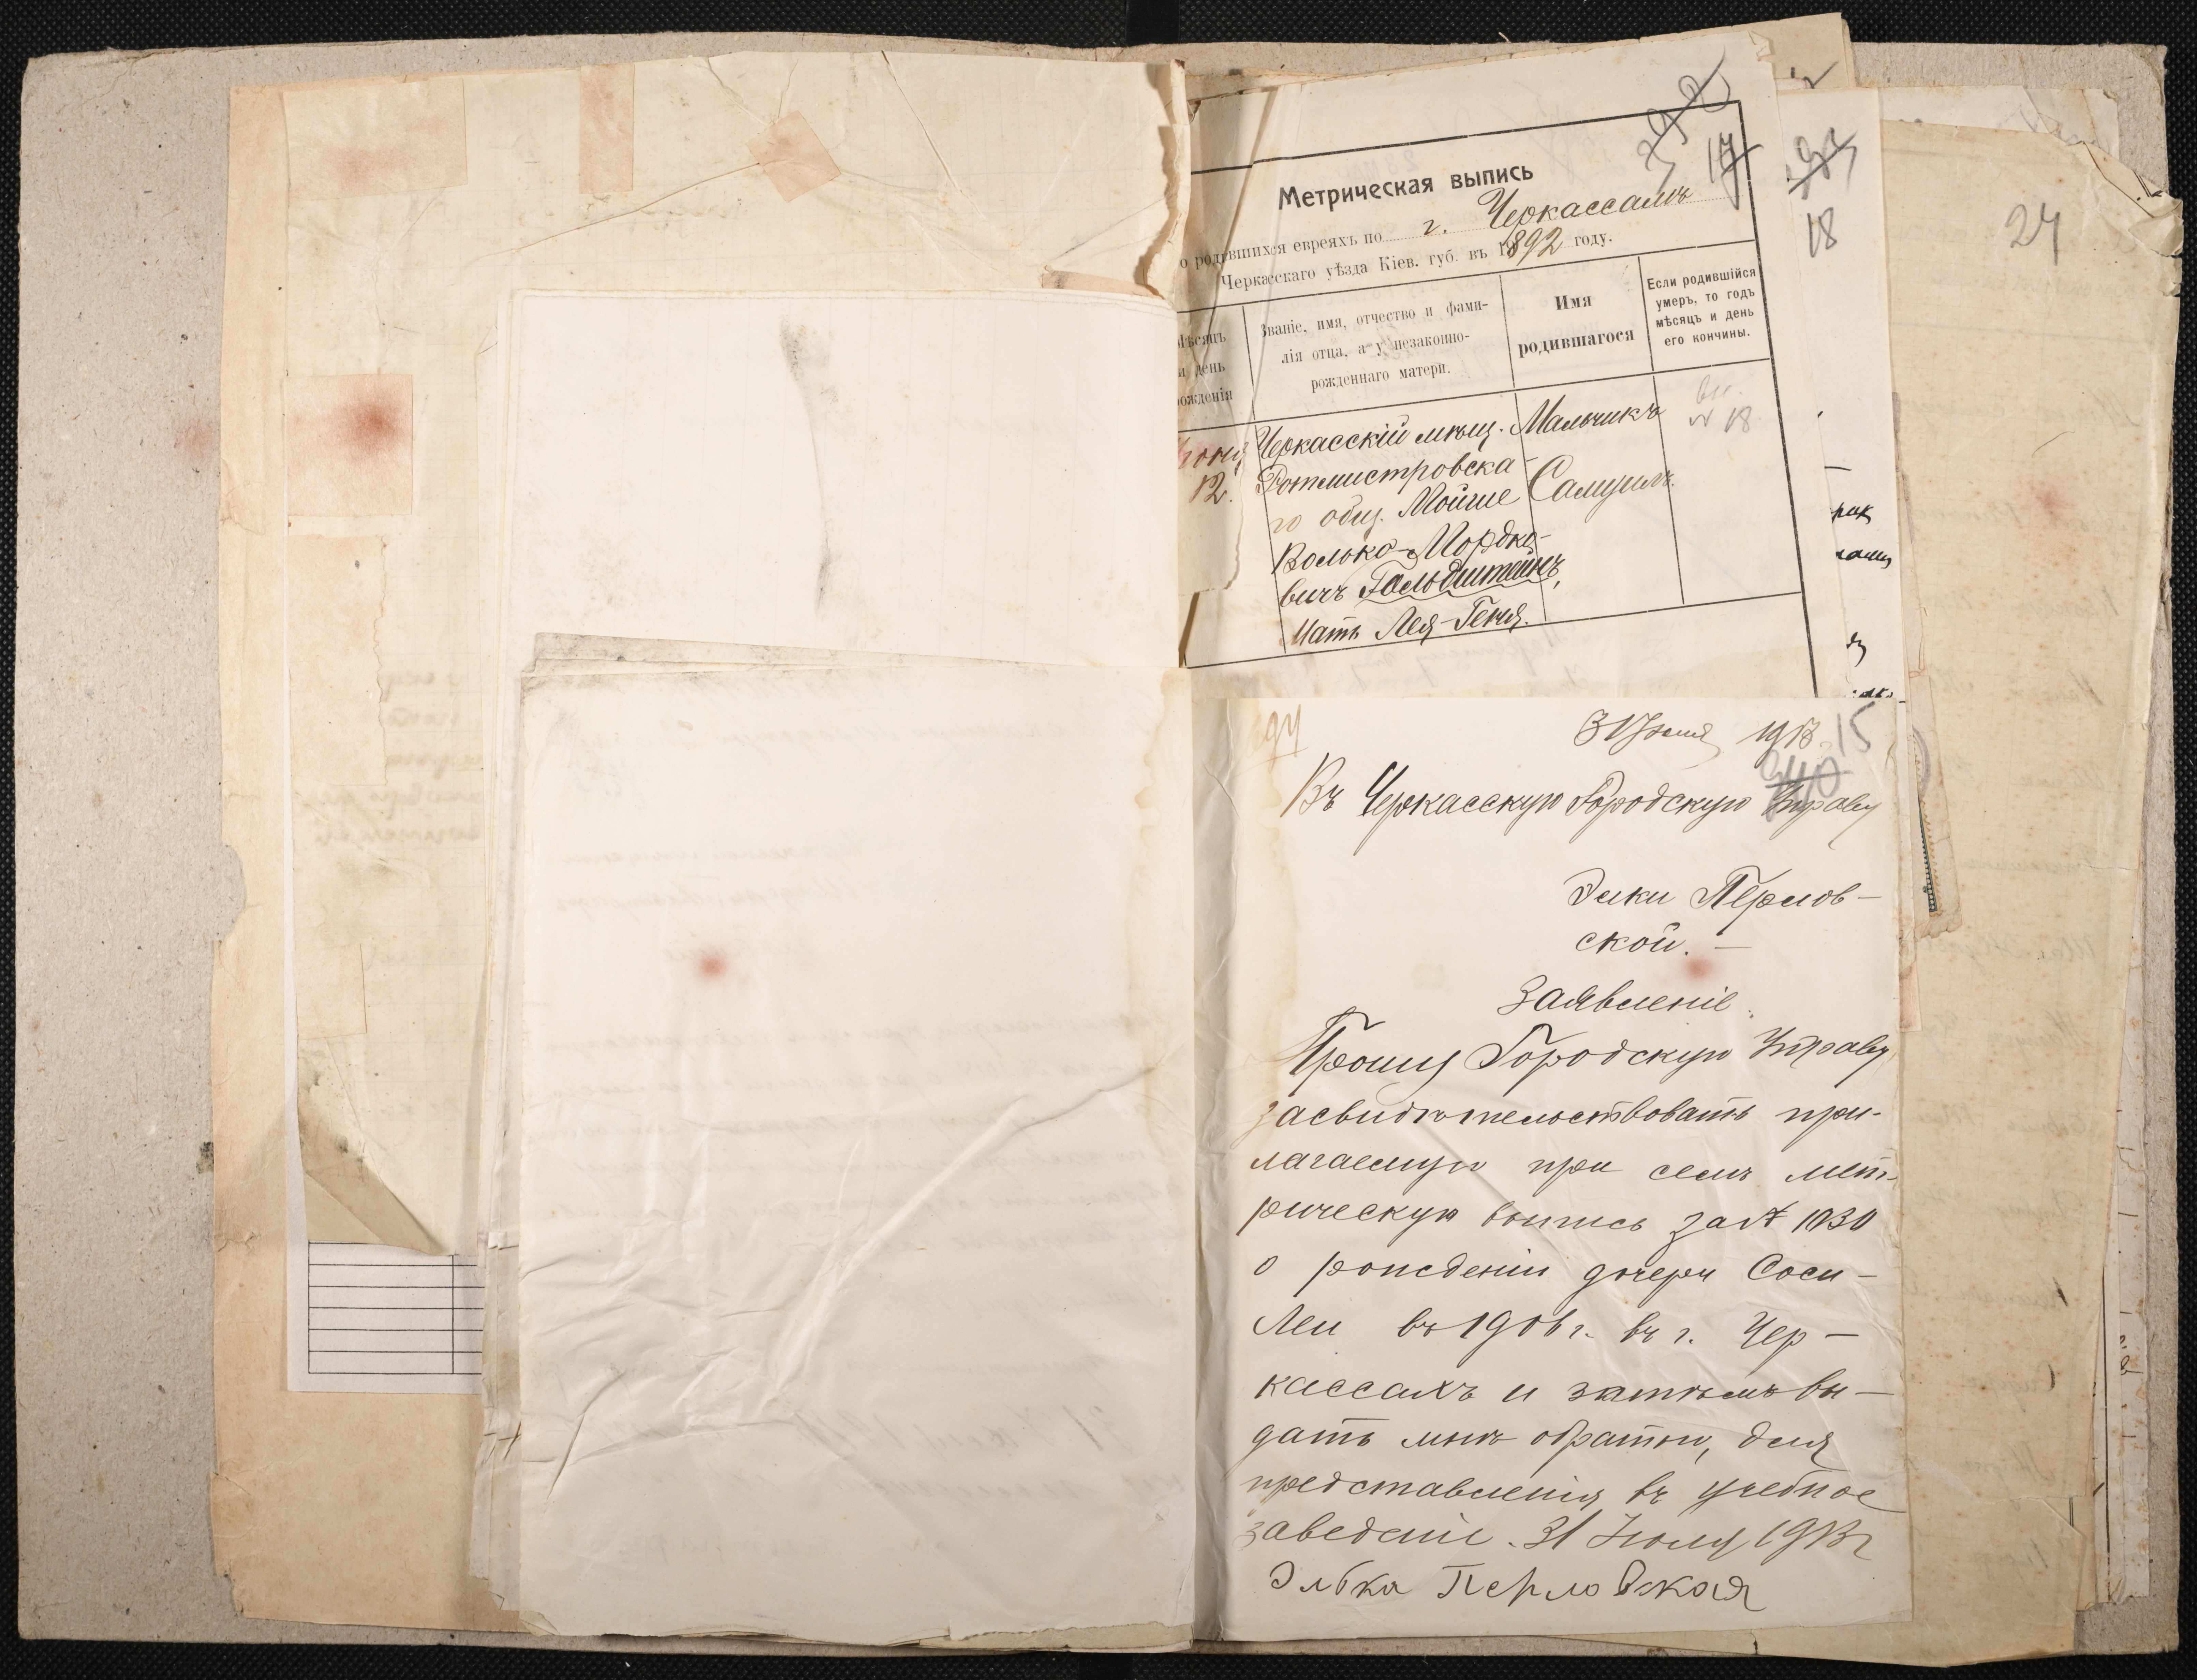 Метрическая выпись
о родившихся евреяхъ по г. Черкассамъ
Черкасскаго уѣзда Кіев. губ. въ 1892 году.
17
18
24
Мѣсяцъ
и день
рожденія
Званіе, имя, отчество и фами-
лія отца, а у незаконно-
рожденнаго матери.
Имя
родившагося
Если родившійся
умеръ, то годъ
мѣсяцъ и день
его кончины.
12.
Черкасскій мѣщ.
Ротмистровска-
го общ. Мойше
Волько-Мордко-
вичъ Гольдштейнъ,
Мать Лея-Геня.
Мальчикъ
Самуилъ.
№ 18
94
31 Іюля 1913
15
340
Въ Черкасскую Городскую Управу
Эльки Перлов-
ской.-
Заявленіе.
Прошу Городскую Управу
засвидѣтельствовать при-
лагаемую при семъ мет-
рическую выпись за № 1030
о рожденіи дочери Соси-
Леи въ 1906 г. въ г. Чер-
кассахъ и затѣмъ вы-
дать мнѣ обратно, для
представленія въ учебное
заведеніе. 31 Іюля 1913 г
Элька Перловская